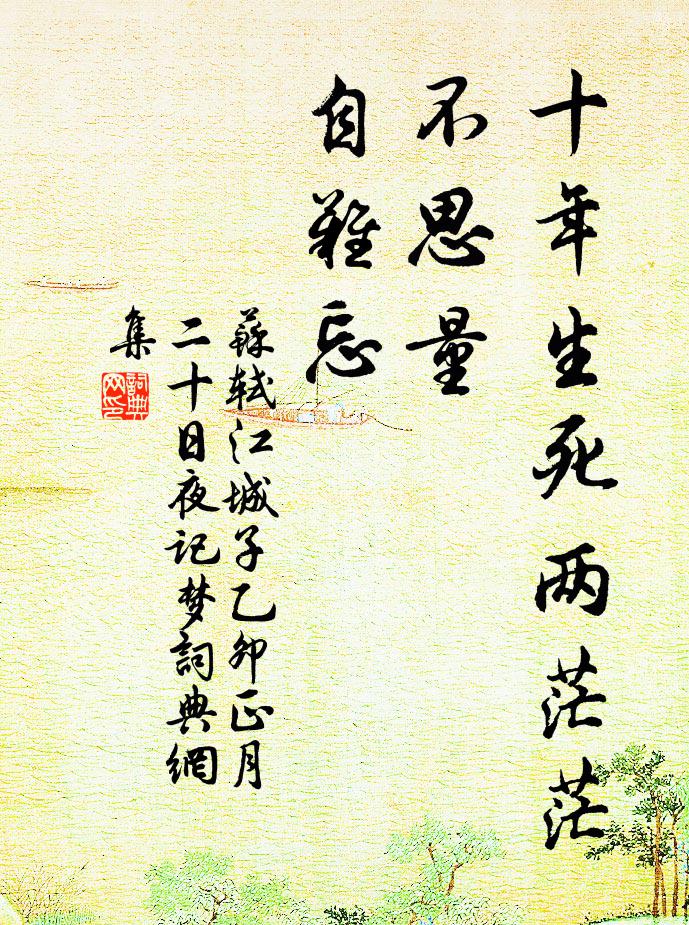 十年生死两茫茫
不思量
自難忘
蘇軾江城子乙卯正月
二十日夜记梦詞典網
集
詞典
网印